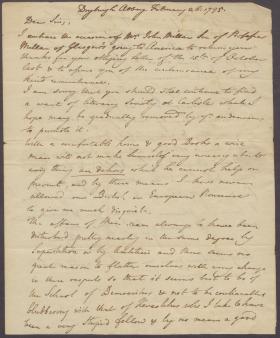 Dryburgh Abbey February 26. 1795.
Dear Sir,
I embrace the occasion of Mr. John Millar Son of Professor
Millar of Glasgow's going to America to return you
thanks for your obliging letter of the 15th of October
last & to assure you of the continuance of my
kind remembrance.
I am sorry that you should still continue to find
a want of Literary Society at Carlisle which I
hope may be gradually removed by your endeavours
to promote it.
With a comfortable home & good Books a wise
man will not make himself very uneasy about
any thing en dehors which he cannot help or
prevent, and by these means I have never
allowed our Bristol, in European Provinces
to give me much disquiet.
The affairs of Men seem always to have been
disturbed pretty nearly in the same degree, by
Superstition & by Ambition and there seems no
great reason to flatter ourselves with any change
in these respects so that it seems best to be of
the School of Democritus & not to be everlastingly
blubbering with that of Heraclitus who I take to have
been a very Stupid fellow & by no means a good